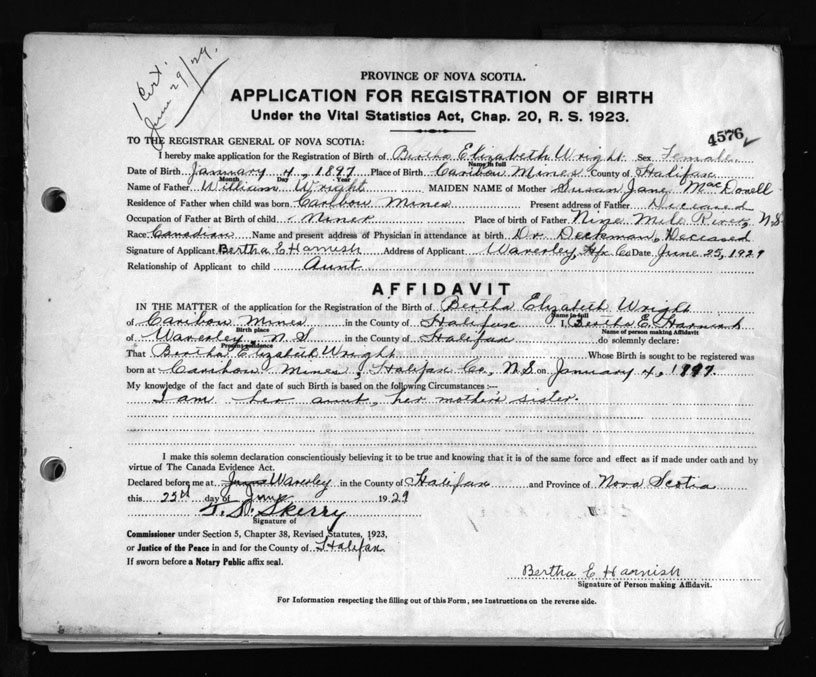 1 Cert.
June 29/29.
PROVINCE OF NOVA SCOTIA.
APPLICATION FOR REGISTRATION OF BIRTH
Under the Vital Statistics Act, Chap. 20, R. S. 1923.
4576
TO THE REGISTRAR GENERAL OF NOVA SCOTIA:
I hereby make application for the Registration of Birth of Bertha Elizabeth Wright Sex Female
Name in full
Date of Birth January 4, 1897 Place of Birth Caribou Mines County of Halifax
Month Day Year
Name of Father William Wright MAIDEN NAME of Mother Susan Jane MacDonell
Residence of Father when child was born Caribou Mines Present address of Father Deceased
Occupation of Father at Birth of child Miner Place of birth of Father Nine Mile River, N.S.
Race Canadian Name and present address of Physician in attendance at birth Dr. Deckman, Deceased
Signature of Applicant Bertha E Harnish Address of Applicant Waverley, Hfx Co Date June 25, 1929
Relationship of Applicant to child Aunt
AFFIDAVIT
IN THE MATTER of the application for the Registration of the Birth of Bertha Elizabeth Wright
Name in full
of Caribou Mines in the County of Halifax I, Bertha E. Harnish
Birth place Name of person making Affidavit
of Waverley, N S in the County of Halifax do solemnly declare:
Present residence
That Bertha Elizabeth Wright Whose Birth is sought to be registered was
born at Caribou Mines, Halifax Co., N.S. on January 4, 1897.
My knowledge of the fact and date of such Birth is based on the following Circumstances :—
I am her aunt, her mother's sister.
I make this solemn declaration conscientiously believing it to be true and knowing that it is of the same force and effect as if made under oath and by
virtue of The Canada Evidence Act.
Declared before me at Waverley in the County of Halifax and Province of Nova Scotia
this 25th day of June 1929
T. D. Skerry
Signature of
Commissioner under Section 5, Chapter 38, Revised Statutes, 1923,
or Justice of the Peace in and for the County of Halifax
If sworn before a Notary Public affix seal.
Bertha E Harnish
Signature of Person making Affidavit.
For Information respecting the filling out of this Form, see Instructions on the reverse side.